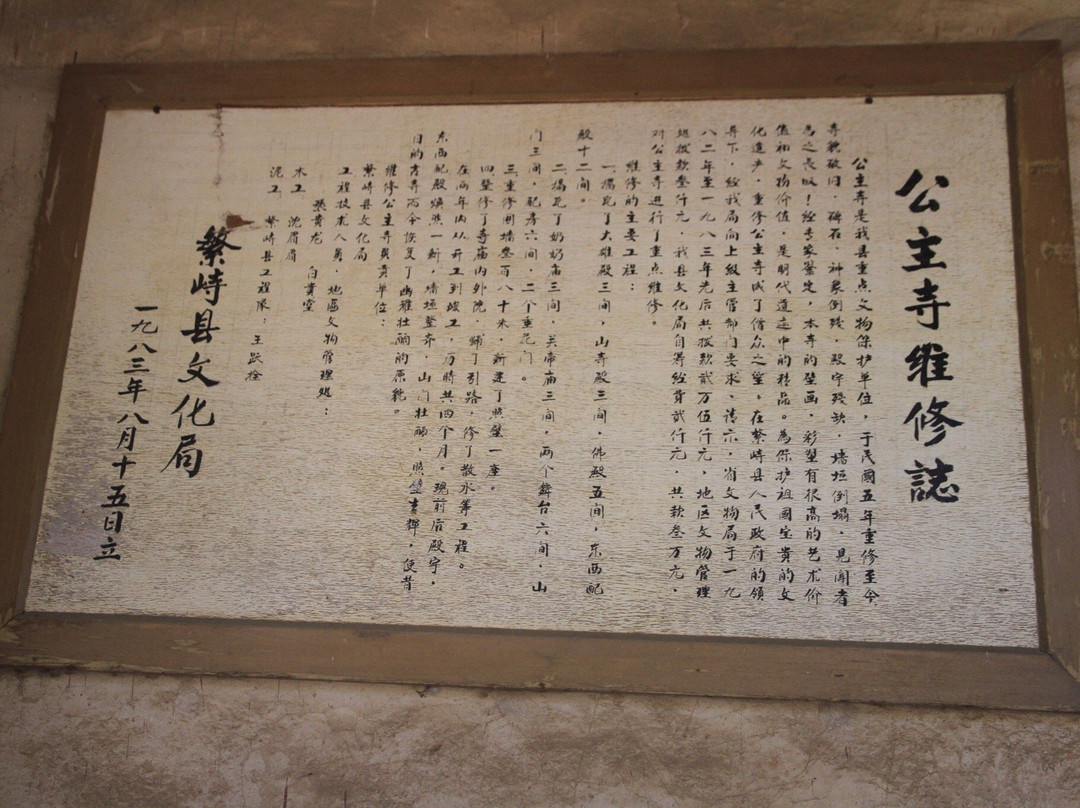 公主寺维修誌
公主寺是我县重点文物保护单位，于民國五年重修至今，
寺貌破旧，碑石、神像倒残，殿宇残缺，墙垣倒塌，見闻者
為之長叹！经专家鉴定，本寺的壁画，彩塑有很高的艺术价
值和文物价值，是明代遗迹中的精品。為保护祖國宝貴的文
化遗产，重修公主寺成了信众之望，在繁峙县人民政府的领
导下，经我局向上级主管部门要求、请示，省文物局于一九
八二年至一九八三年先后共拨款貳万伍仟元，地区文物管理
处拨款叁仟元，我县文化局自筹经费貳仟元，共款叁万元，
对公主寺进行了重点维修。
维修的主要工程：
一、揭瓦了大雄殿三间，山寺殿三间，佛殿五间，东西配
殿十二间。
二、揭瓦了奶奶庙三间，关帝庙三间，两个舞台六间，山
门三间，配房六间，二个垂花门。
三、重修围墙叁百八十米，新建了照壁一座。
四、整修了寺庙内外院，铺了引路，修了散水等工程。
在两年内从开工到竣工，历時共四个月。現前后殿宇，
东西配殿焕然一新，墙垣整齐，山门壮丽，照壁生輝，使昔
日的古寺而今恢复了幽雅壮丽的原貌。
维修公主寺負責单位：
繁峙县文化局
工程技术人员：地區文物管理处：
张貴龙　白貴堂
木工　沈眉眉
泥工　繁峙县工程隊：王跃拴
繁峙县文化局
一九八三年八月十五日立